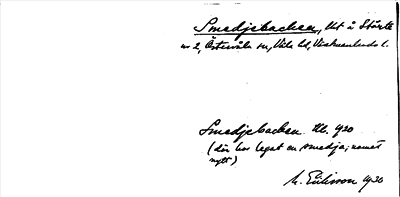 Smedjebacken, th å Stärte
nr 2, Östervåla sn, Våla hd, Västmanlands l.
Smedjebacken Ub. 1920
(där har legat en smedja; namnet
nytt)
M. Eriksson 1930